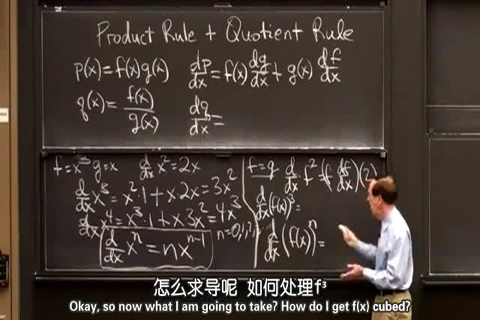 Product Rule + Quotient Rule
p(x) = f(x)g(x)   dp/dx = f(x) dg/dx + g(x) df/dx
q(x) = f(x)/g(x)   dq/dx =
g=x   d/dx x² = 2x
d/dx x³ = x²·1 + x 2x = 3x²
d/dx x⁴ = x³·1 + x 3x² = 4x³
d/dx xⁿ = nx^(n-1)
f=g   d/dx f² = (f df/dx)(2)
d/dx (f(x))³ =
d/dx (f(x))ⁿ =
怎么求导呢 如何处理f³
Okay, so now what I am going to take? How do I get f(x) cubed?